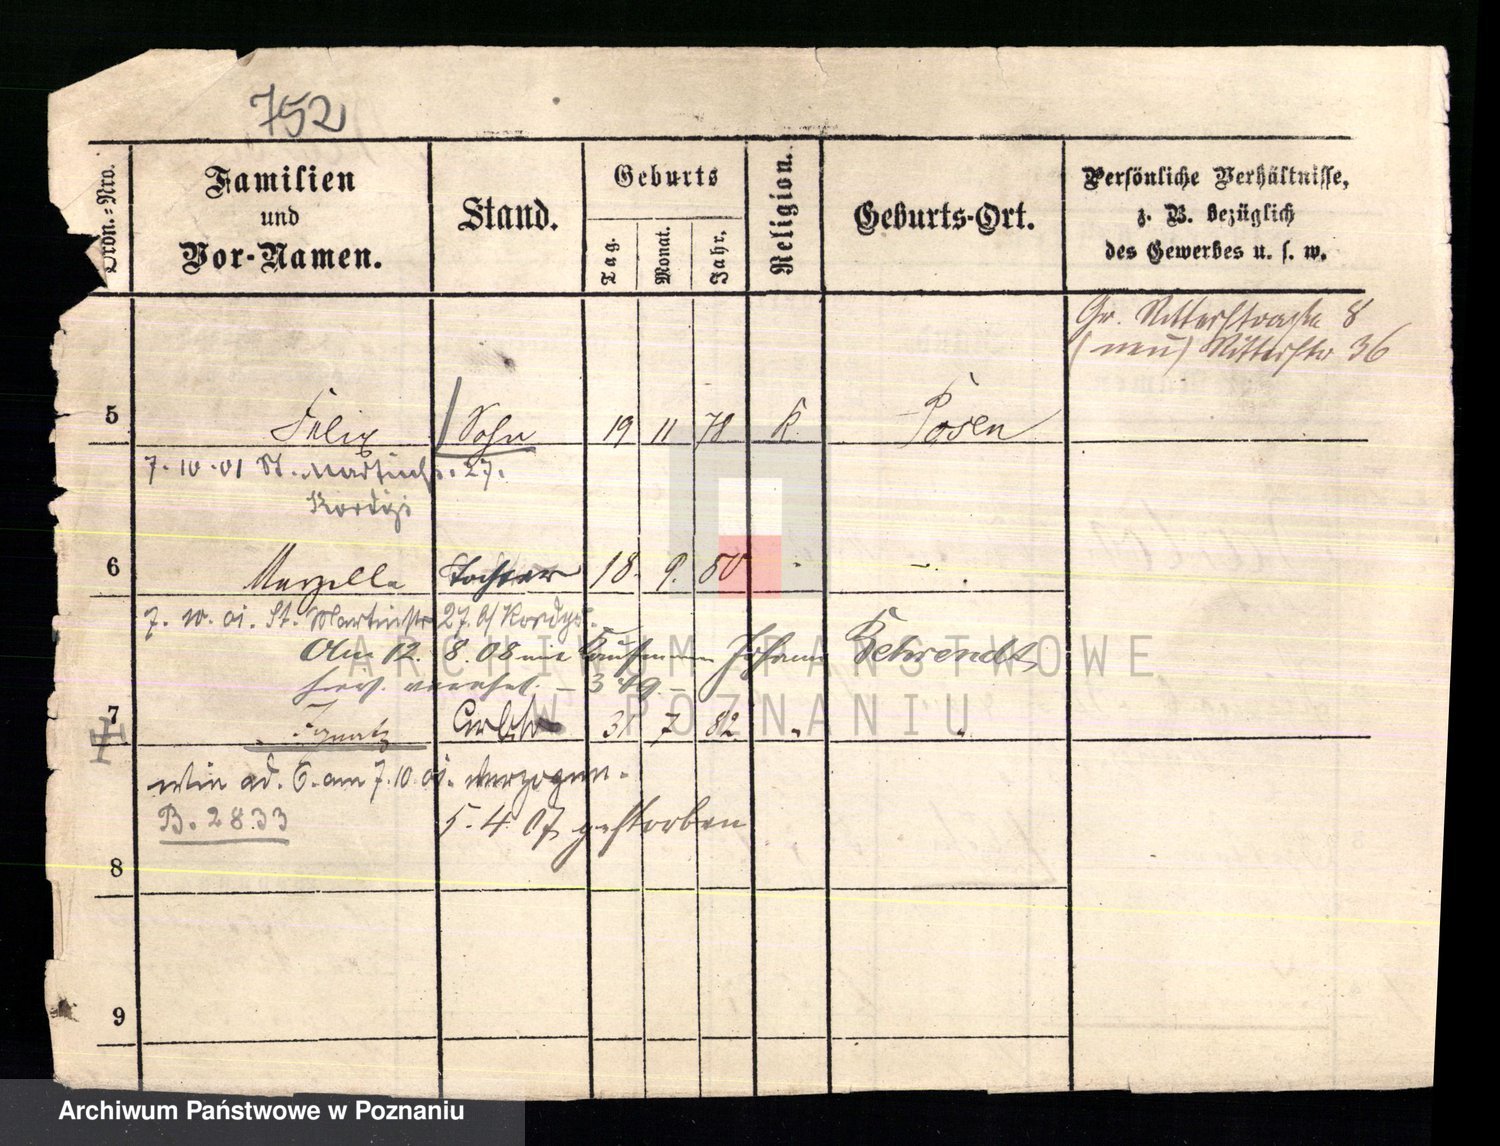 752
Ordn.-Nro.
Familien
und
Vor-Namen.
Stand.
Geburts
Tag.
Monat.
Jahr.
Religion.
Geburts-Ort.
Persönliche Verhältnisse,
z. B. bezüglich
des Gewerbes u. s. w.
Gr. Ritterstraße 8
(neu) Ritterstr 36
5 Felix Sohn 19 11 78 K Posen
7. 10. 01 St. Martinstr. 27.
6 Marzella Tochter 18. 9. 80 "
7. 10. 01. St. Martinstr 27. b/
Am 12. 8. 08 mit Kaufmann Johann Behrendt
hier. verehel. - 349 -
7 Ignatz 31 7 82 " "
wie ad. 6. am 7. 10. 01. verzogen.
B. 2833
5. 4. 07 gestorben
8
9
ARCHIWUM PAŃSTWOWE
W POZNANIU
Archiwum Państwowe w Poznaniu